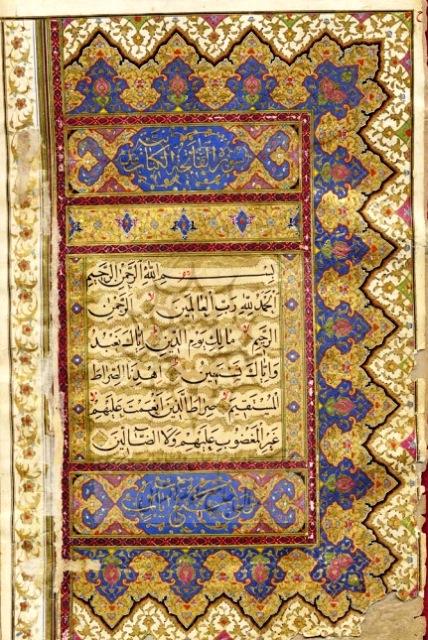 سورة الفاتحة الكتاب
بِسْمِ اللهِ الرَّحْمٰنِ الرَّحِيمِ
اَلْحَمْدُ لِلّٰهِ رَبِّ الْعَالَمِينَ اَلرَّحْمٰنِ
الرَّحِيمِ مَالِكِ يَوْمِ الدِّينِ اِيَّاكَ نَعْبُدُ
وَاِيَّاكَ نَسْتَعِينُ اِهْدِنَا الصِّرَاطَ
الْمُسْتَقِيمَ صِرَاطَ الَّذِينَ اَنْعَمْتَ عَلَيْهِمْ
غَيْرِ الْمَغْضُوبِ عَلَيْهِمْ وَلَا الضَّالِّينَ